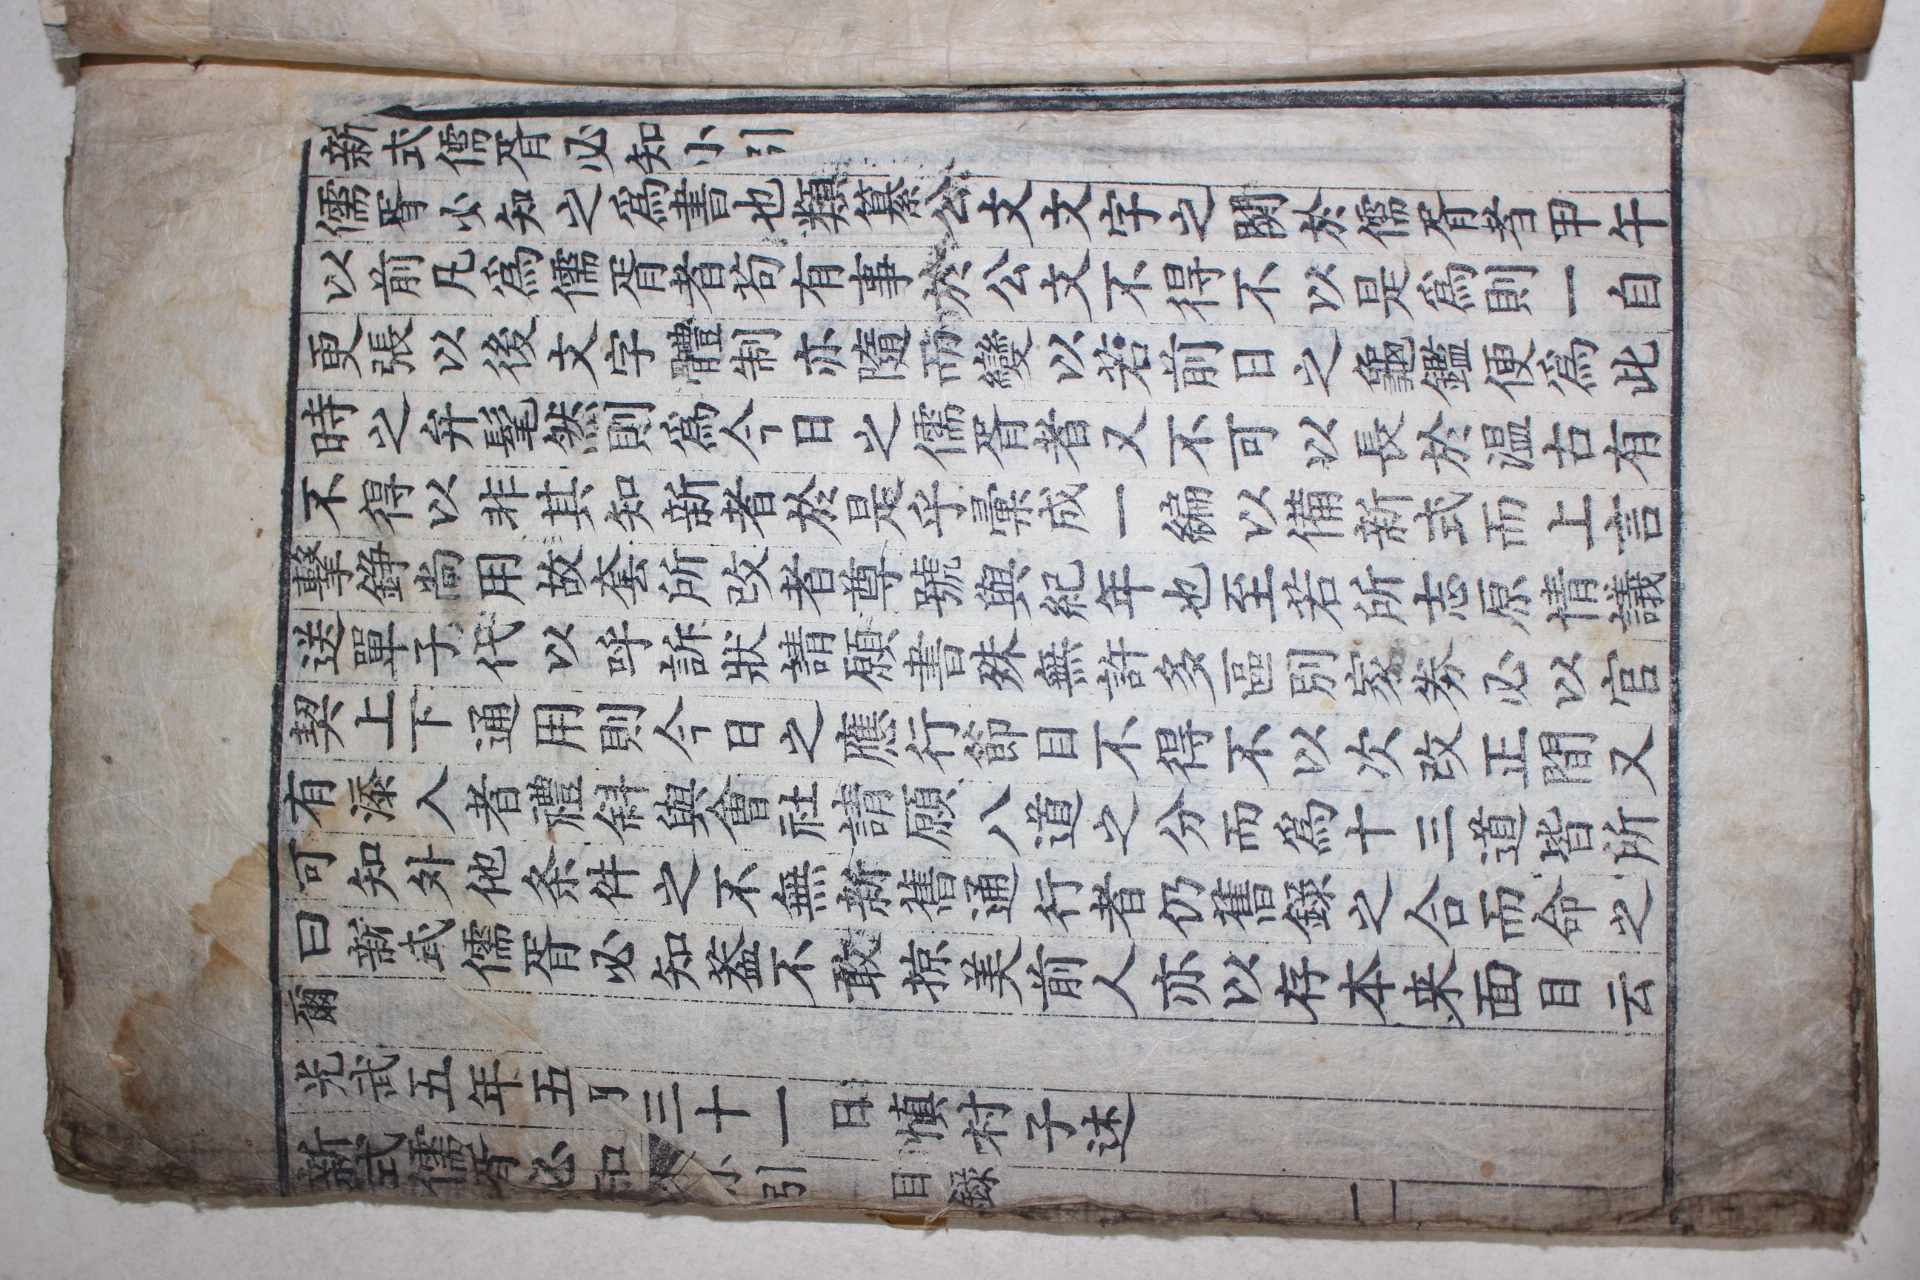 新式儒胥必知小引
儒胥必知之爲書也類纂公文文字之関於儒胥者甲午
以前凡爲儒胥者苟有事於公文不得不以是爲則一自
更張以後文字體制亦隨而變以若前日之龜鑑便爲此
時之弁髦然則爲今日之儒胥者又不可以長於温古有
不得以非其知新者於是乎彙成一編以備新式而上言
擊錚尚用故套所改者尊號與紀年也至若所志原情議
送單子代以呼訴狀請願書殊無許多區別家券必以官
契上下通用則今日之應行節目不得不以次改正間又
有添入者禮斜與會社請願八道之分而爲十三道皆所
可知外他条件之不無新舊通行者仍舊錄之合而命之
曰新式儒胥必知葢不敢掠美前人亦以存本来面目云
爾
光武五年五月三十一日慎村子述
新式儒胥必知 小引 目錄 一